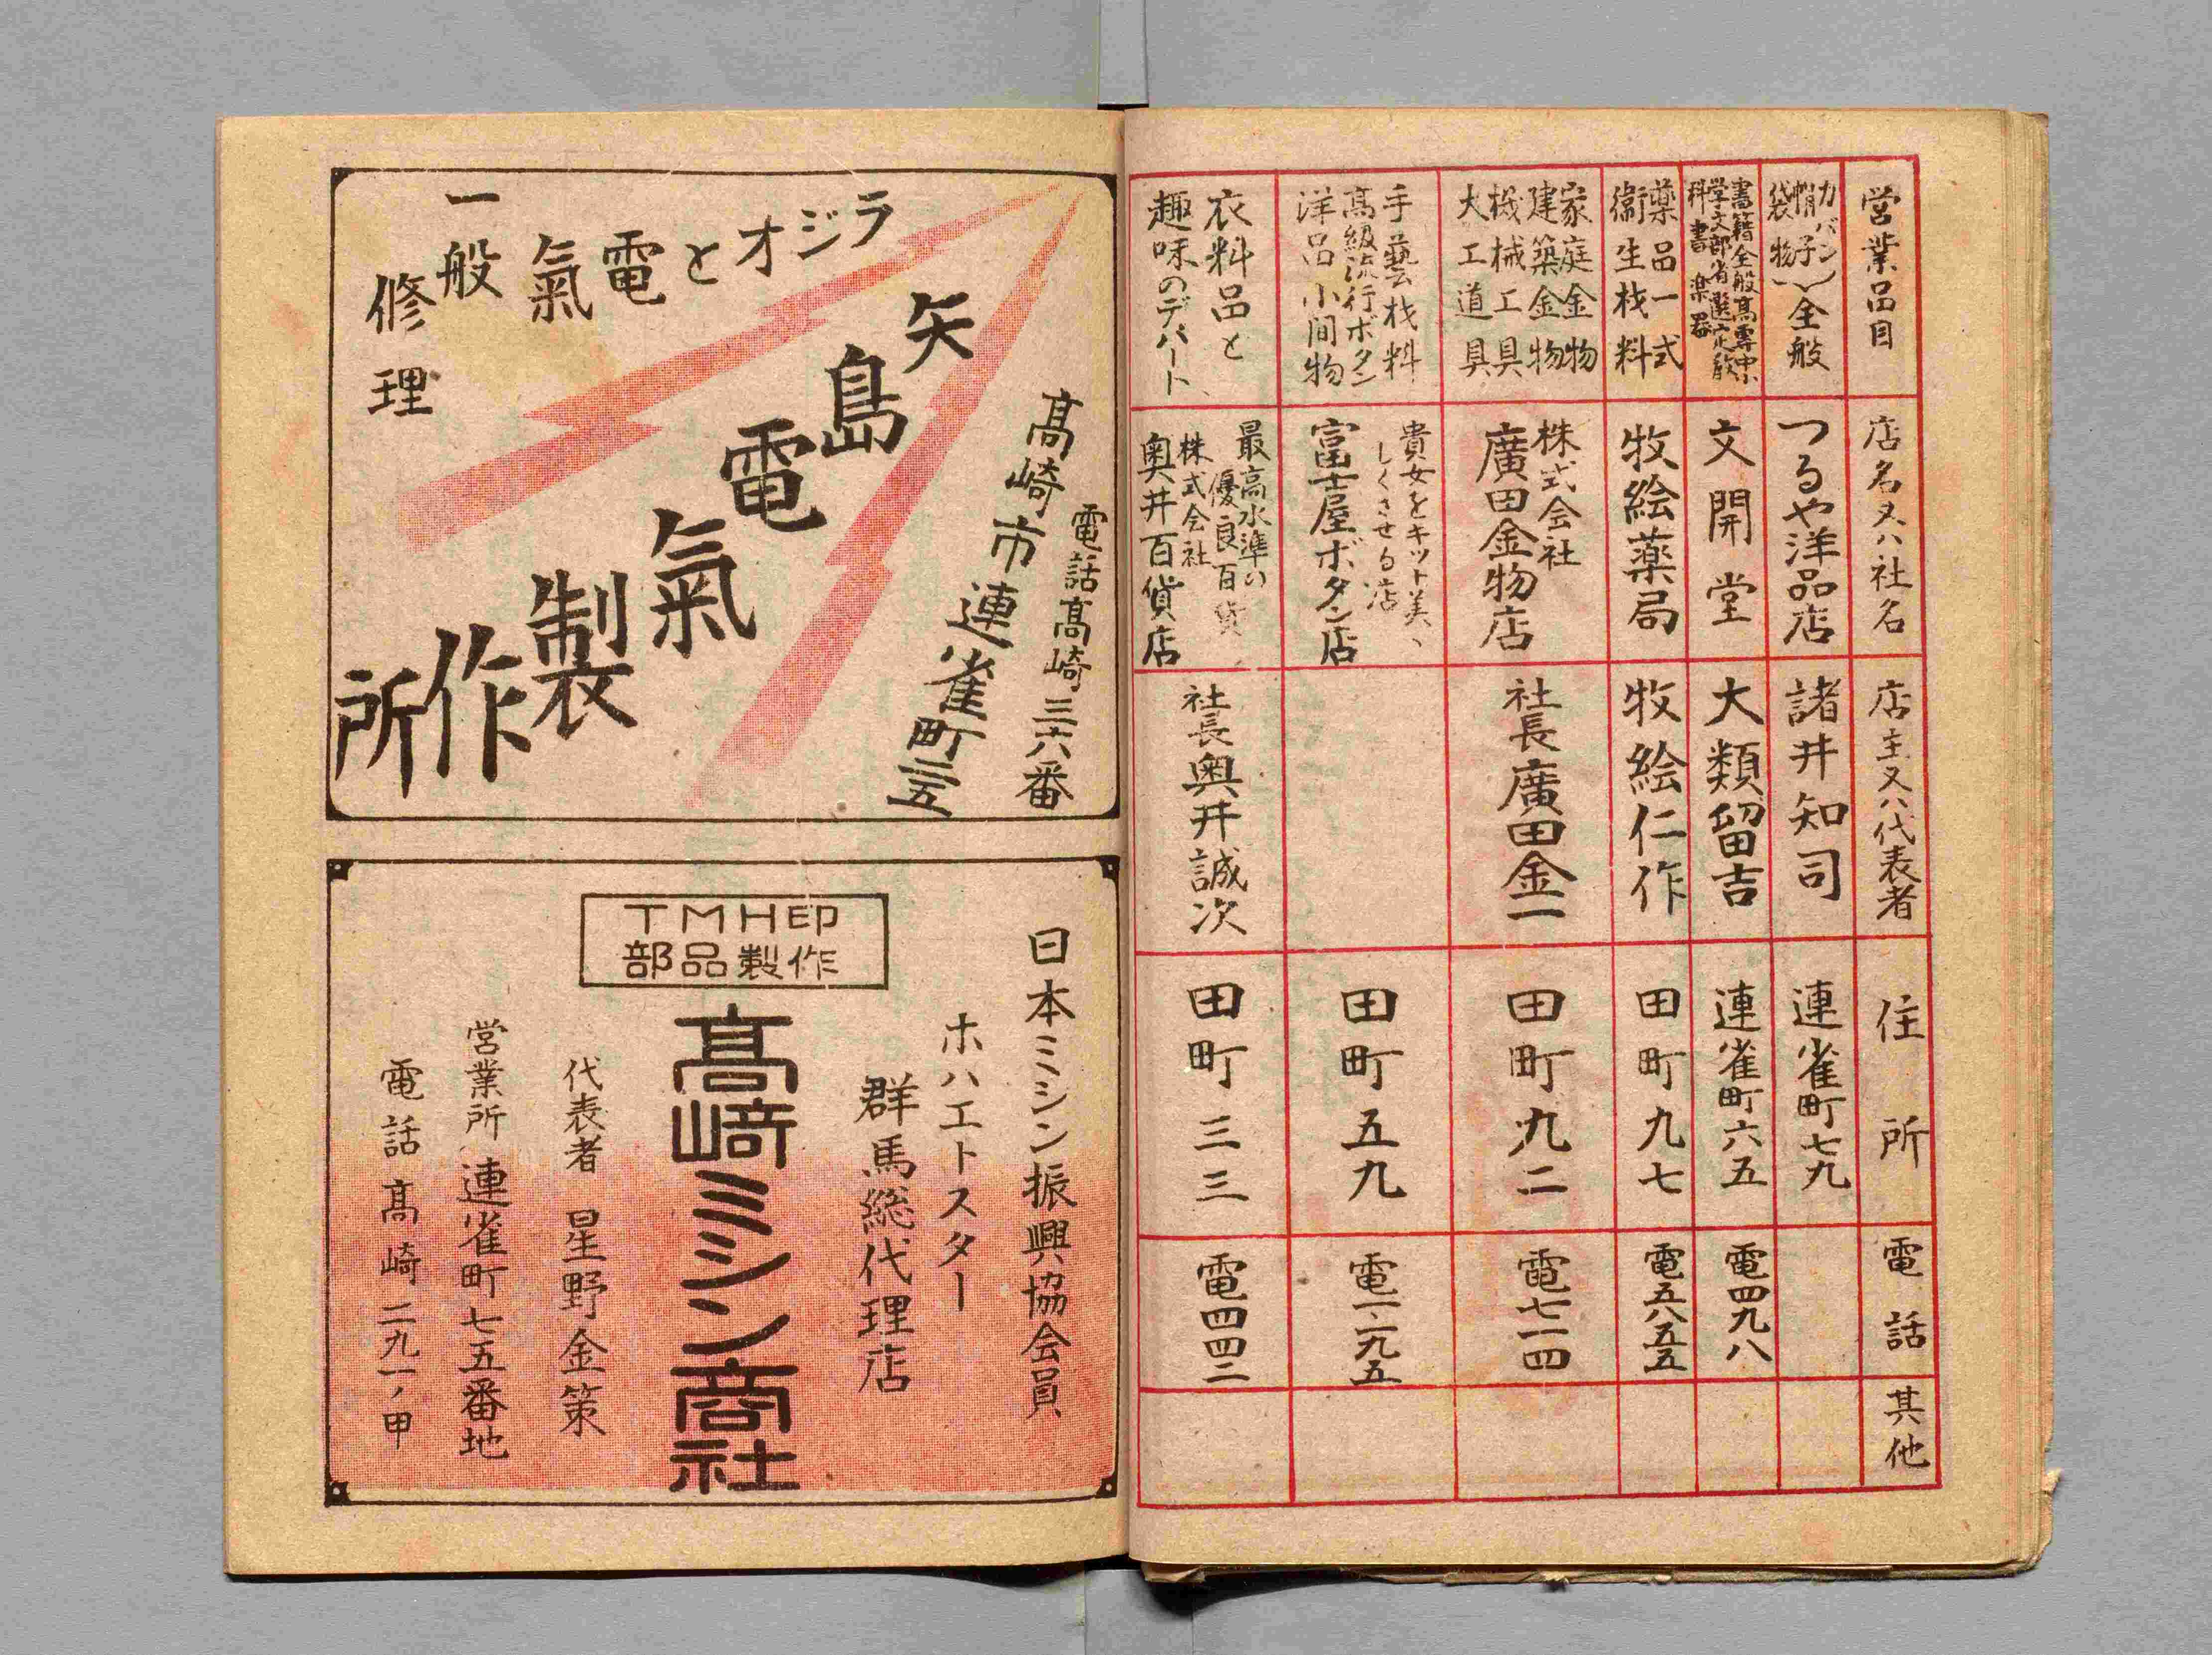 営業品目
店名又ハ社名
店主又ハ代表者
住所
電話
其他
カバン
帽子
袋物
全般
つるや洋品店
諸井知司
連雀町七九
書籍全般高専中小
学文部省選定教
科書 楽器
文開堂
大類留吉
連雀町六五
電四九八
薬品一式
衛生材料
牧絵薬局
牧絵仁作
田町九七
電五八五五
家庭金物
建築金物
機械工具
大工道具
株式会社
廣田金物店
社長廣田金一
田町九二
電七一四
手藝材料
高級流行ボタン
洋品小間物
貴女をキット美
しくさせる店
富士屋ボタン店
田町五九
電一、二九五
衣料品と
趣味のデパート
最高水準の
優良百貨
株式会社
奥井百貨店
社長奥井誠次
田町三三
電四四二
ラジオと電氣一般修理
矢島電氣製作所
電話高崎三六番
高崎市連雀町三五
TMH印
部品製作
日本ミシン振興協会員
ホハエトスター
群馬総代理店
高崎ミシン商社
代表者 星野金策
営業所 連雀町七五番地
電話高崎二九一ノ甲